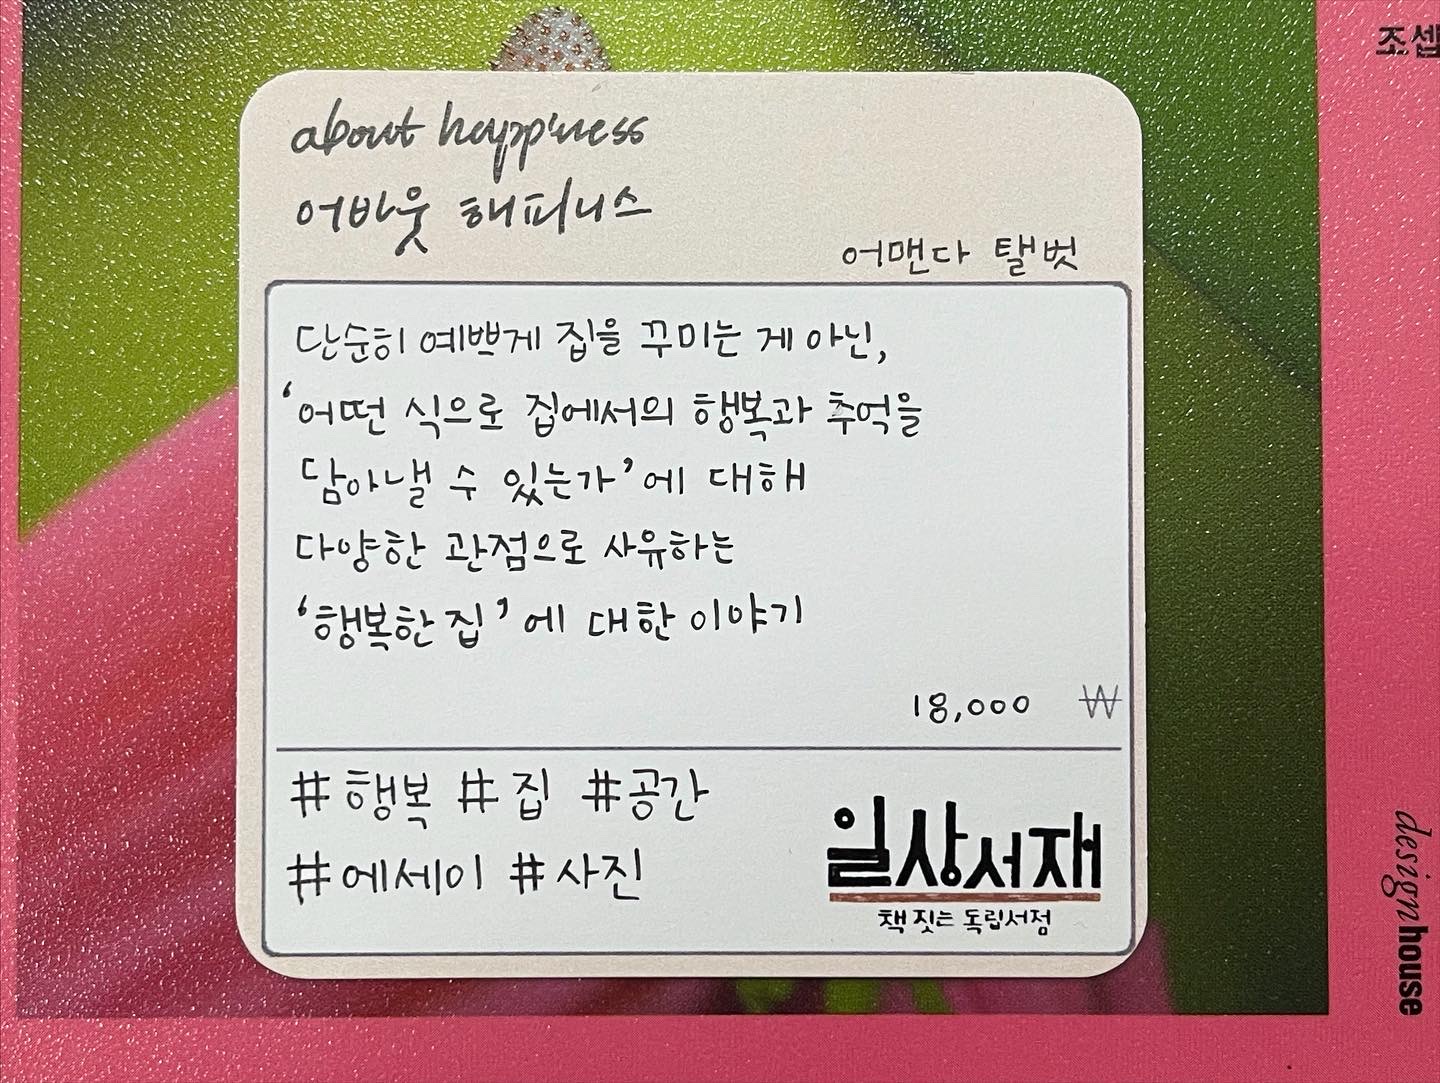 about happiness
어바웃 해피니스
어맨다 탤벗
단순히 예쁘게 집을 꾸미는 게 아닌,
‘어떤 식으로 집에서의 행복과 추억을
담아낼 수 있는가’에 대해
다양한 관점으로 사유하는
‘행복한 집’에 대한 이야기
18,000 ₩
#행복 #집 #공간
#에세이 #사진
일상서재
책 짓는 독립서점
조셉
designhouse